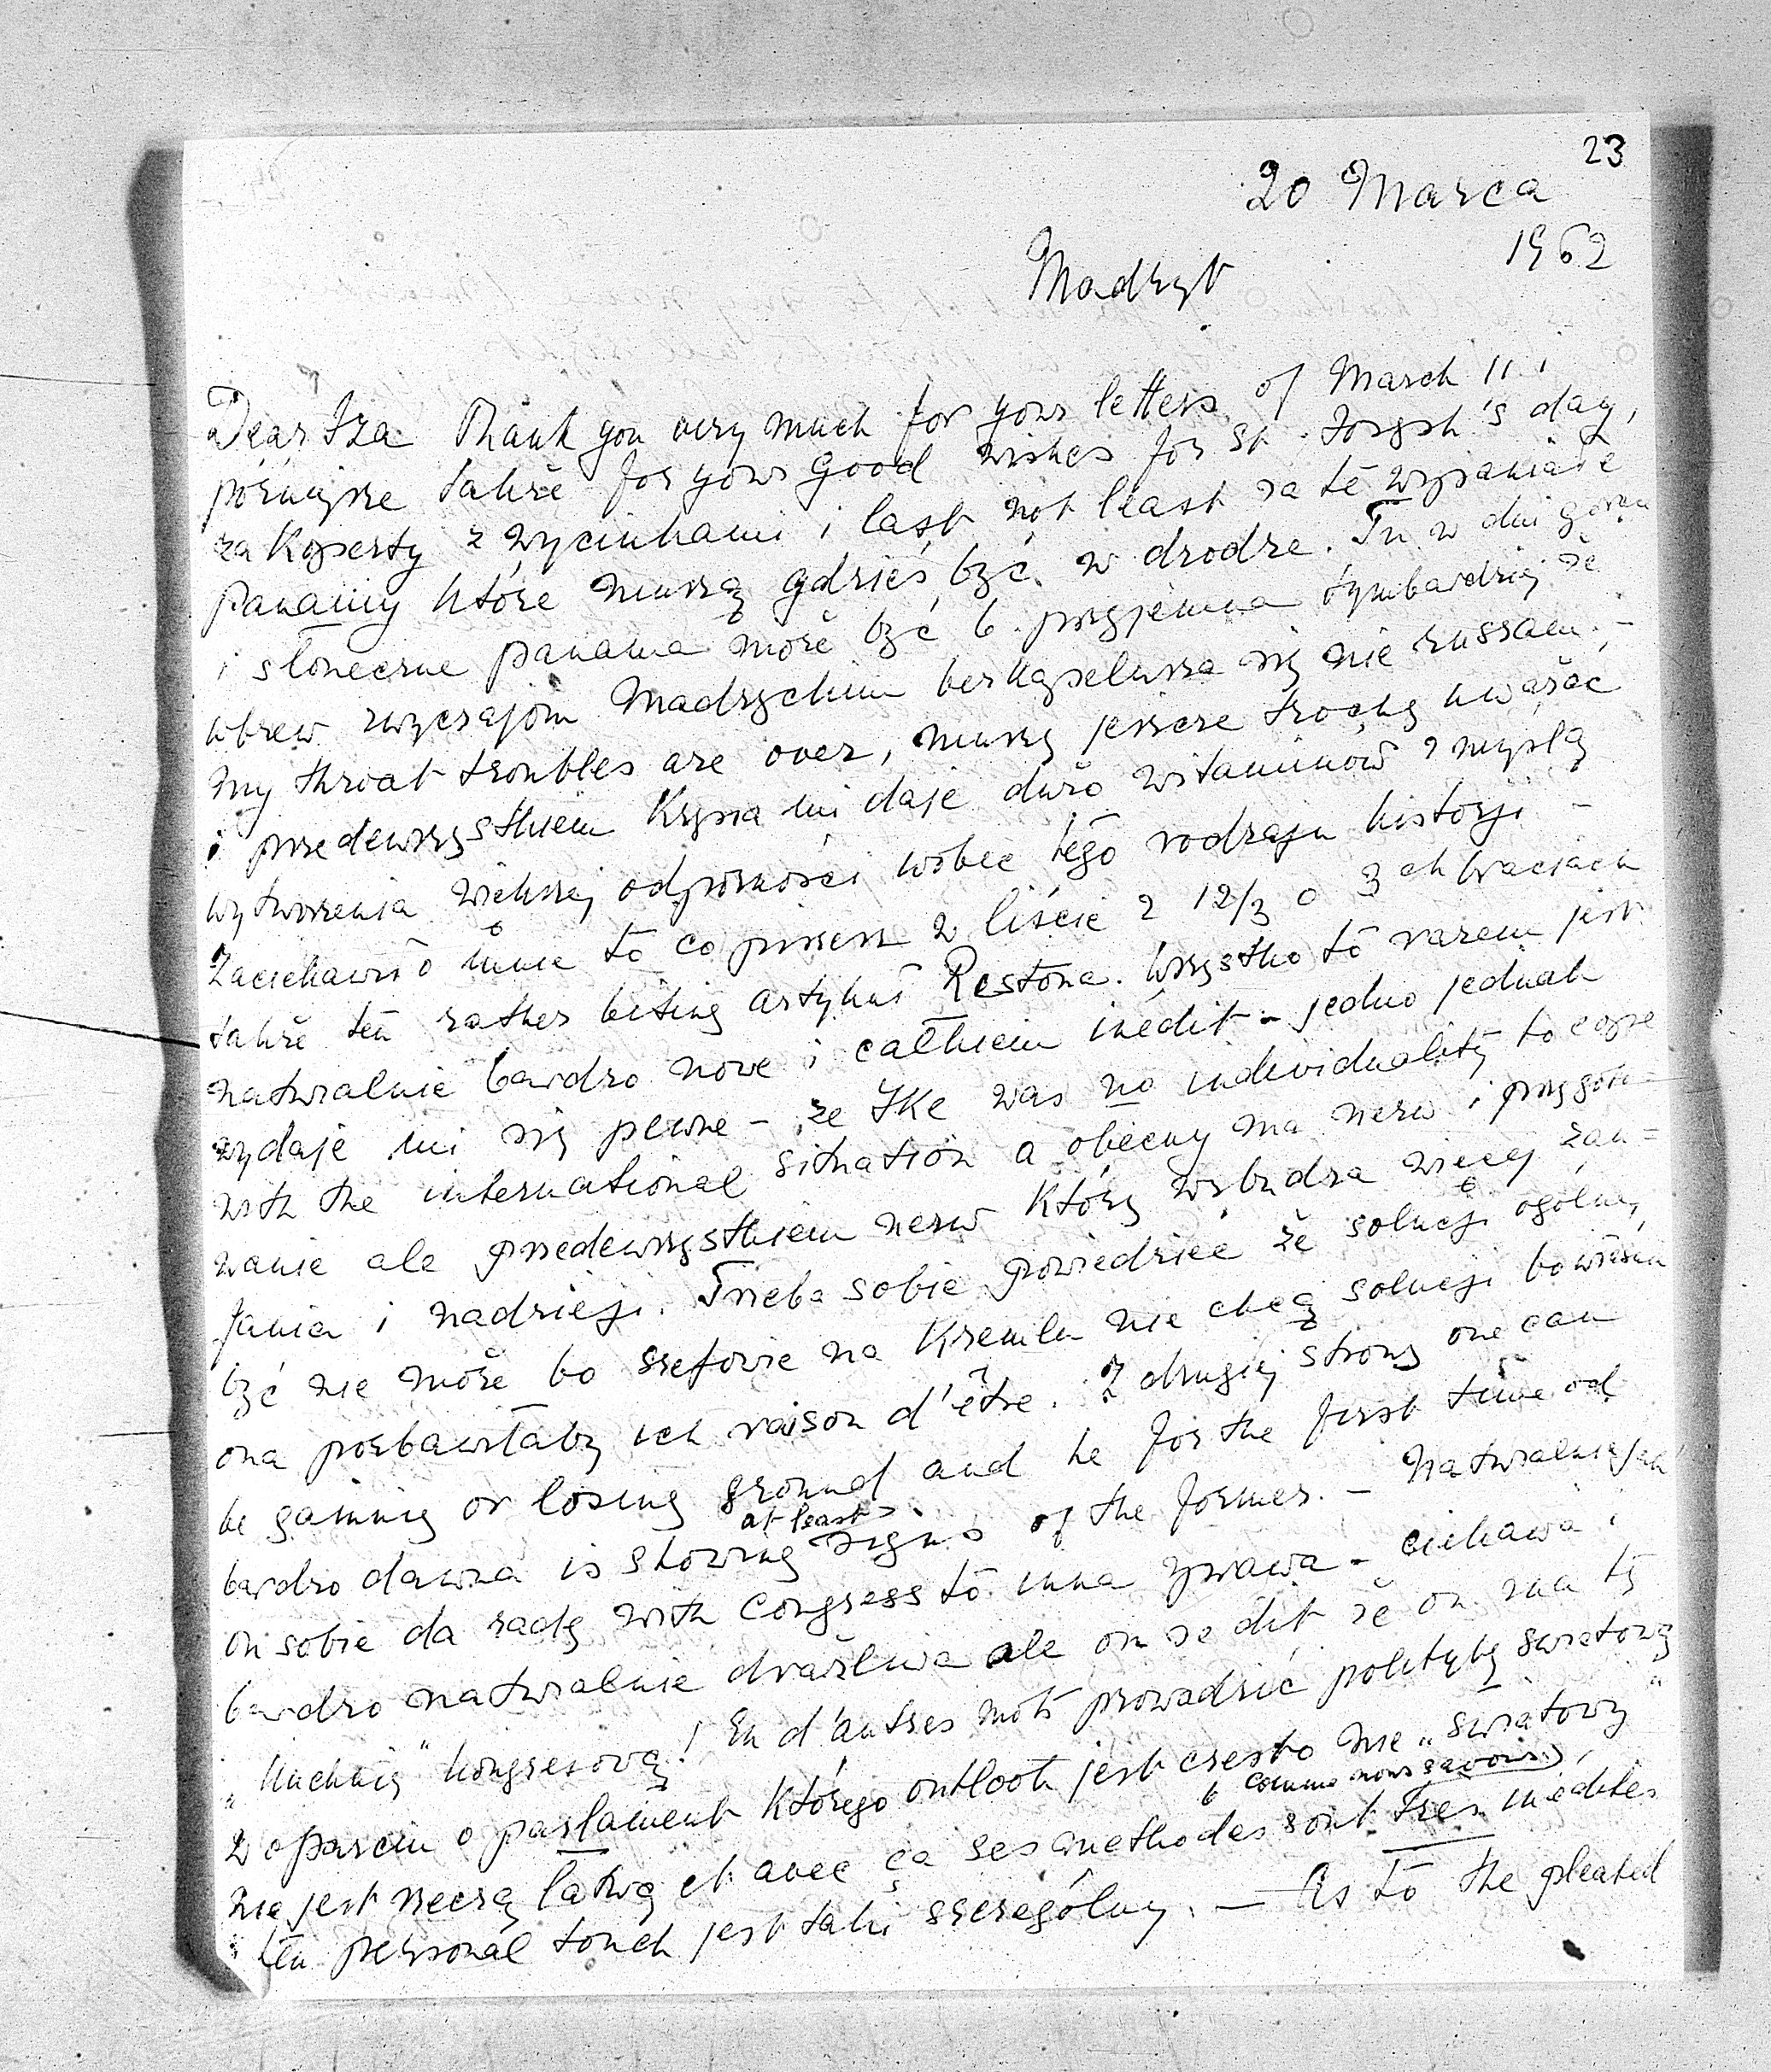 23
20 Marca
1962
Madryt
Dear Iza Thank you very much for your letters of March 11 i
późniejsze także for your good wishes for St. Joseph's day,
za koperty z wycinkami i last not least za tę wspaniałe
panamy które muszą gdzieś być w drodze. Tu w dni gorące
i słoneczne panama może być b. przyjemna tymbardziej że
wbrew zwyczajom Madryckim bez kapelusza się nie ruszam. –
My throat troubles are over, muszę jeszcze trochę uważać
i przedewszystkiem Krysia mi daje dużo witaminów z myślą
wytworzenia większej odporności wobec tego rodzaju historji –
Zaciekawiło mnie to co piszesz w liście z 12/3 o 3ch braciach
także ten rather biting artykuł Restona. Wszystko to razem jest
naturalnie bardzo nowe i całkiem inédit – jedno jednak
wydaje mi się pewne – że Ike was no individuality to cope
with the international situation a obecny ma nerw i przygoto=
wanie ale przedewszystkiem nerw który wzbudza więcej zau=
fania i nadzieji. Trzeba sobie powiedzieć że solucji ogólnej
być nie może bo szefowie na Kremlu nie chcą solucji bowiem
ona pozbawiłaby ich raison d'être. Z drugiej strony one can
be gaining or losing ground and he for the first time od
bardzo dawna is showing at least signs of the former. – Naturalnie jak
on sobie da radę with Congress to inna sprawa – ciekawa i
bardzo naturalnie drażliwa ale on se dit że on zna tę
„kuchnię" kongresową! En d'autres mots prowadzić politykę światową
w oparciu o parlament którego outlook jest często nie „światowy"
nie jest rzeczą łatwą et avec ça ses methodes sont (comme nous savons) très inédites
i ten personal touch jest taki szczególny. – As to the pleated